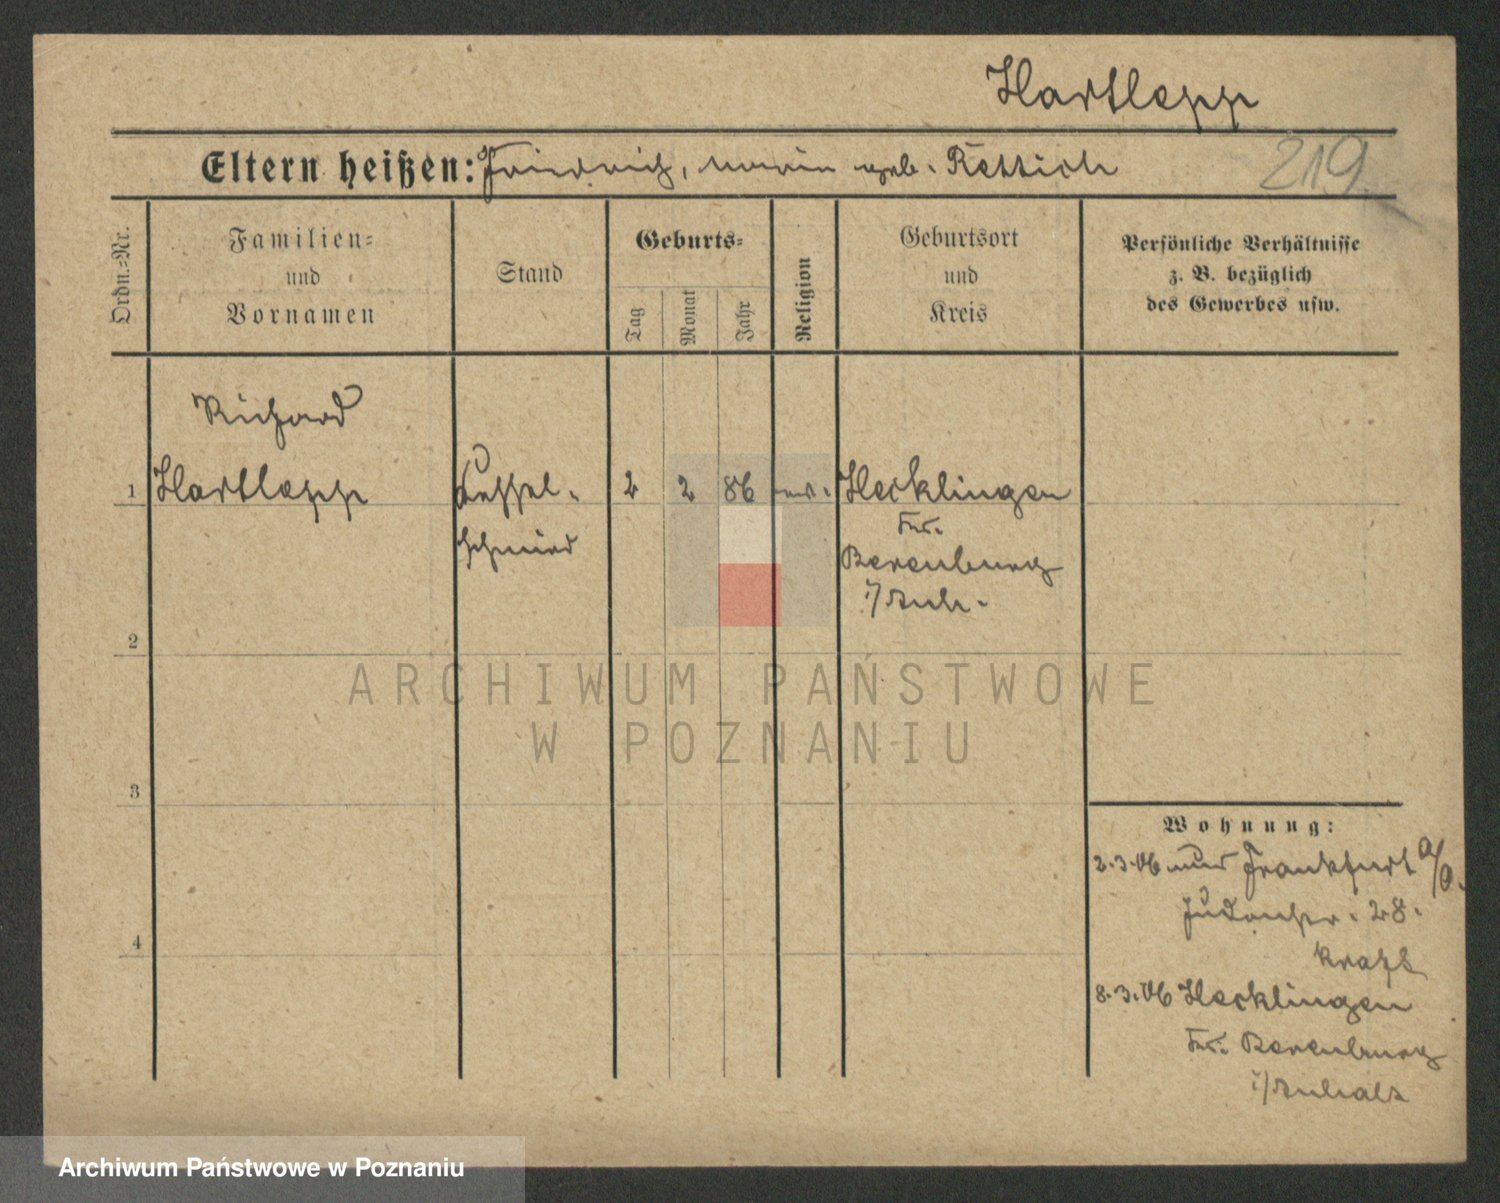 Hartlepp
Eltern heißen: Friedrich, Marie geb. Rettich
219
Ordn.-Nr.
Familien-
und
Vornamen
Stand
Geburts-
Tag
Monat
Jahr
Religion
Geburtsort
und
Kreis
Persönliche Verhältnisse
z. B. bezüglich
des Gewerbes usw.
Richard
1 Hartlepp Kessel- 2 2 86 Hecklingen
schmied
Kr.
Berenburg
i/Anh.
2
3
4
ARCHIWUM PAŃSTWOWE
W POZNANIU
Wohnung:
2.3.06 Frankfurt a/O.
Judenstr. 28.
Kraft
8.3.06 Hecklingen
Kr. Berenburg
i/Anhalt
Archiwum Państwowe w Poznaniu